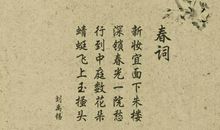 春词
新妆宜面下朱楼
深锁春光一院愁
行到中庭数花朵
蜻蜓飞上玉搔头
刘禹锡